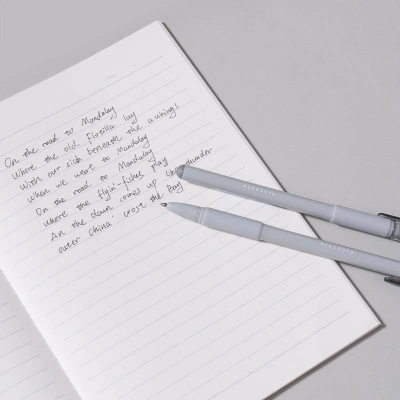 On the road to Mandalay
Where the old Flotilla lay
With our sick beneath the awings
when we went to Mandalay
On the road to Mandalay
where the flyin'-fishes play
An the dawn comes up like thunder
outer China 'crost the Bay